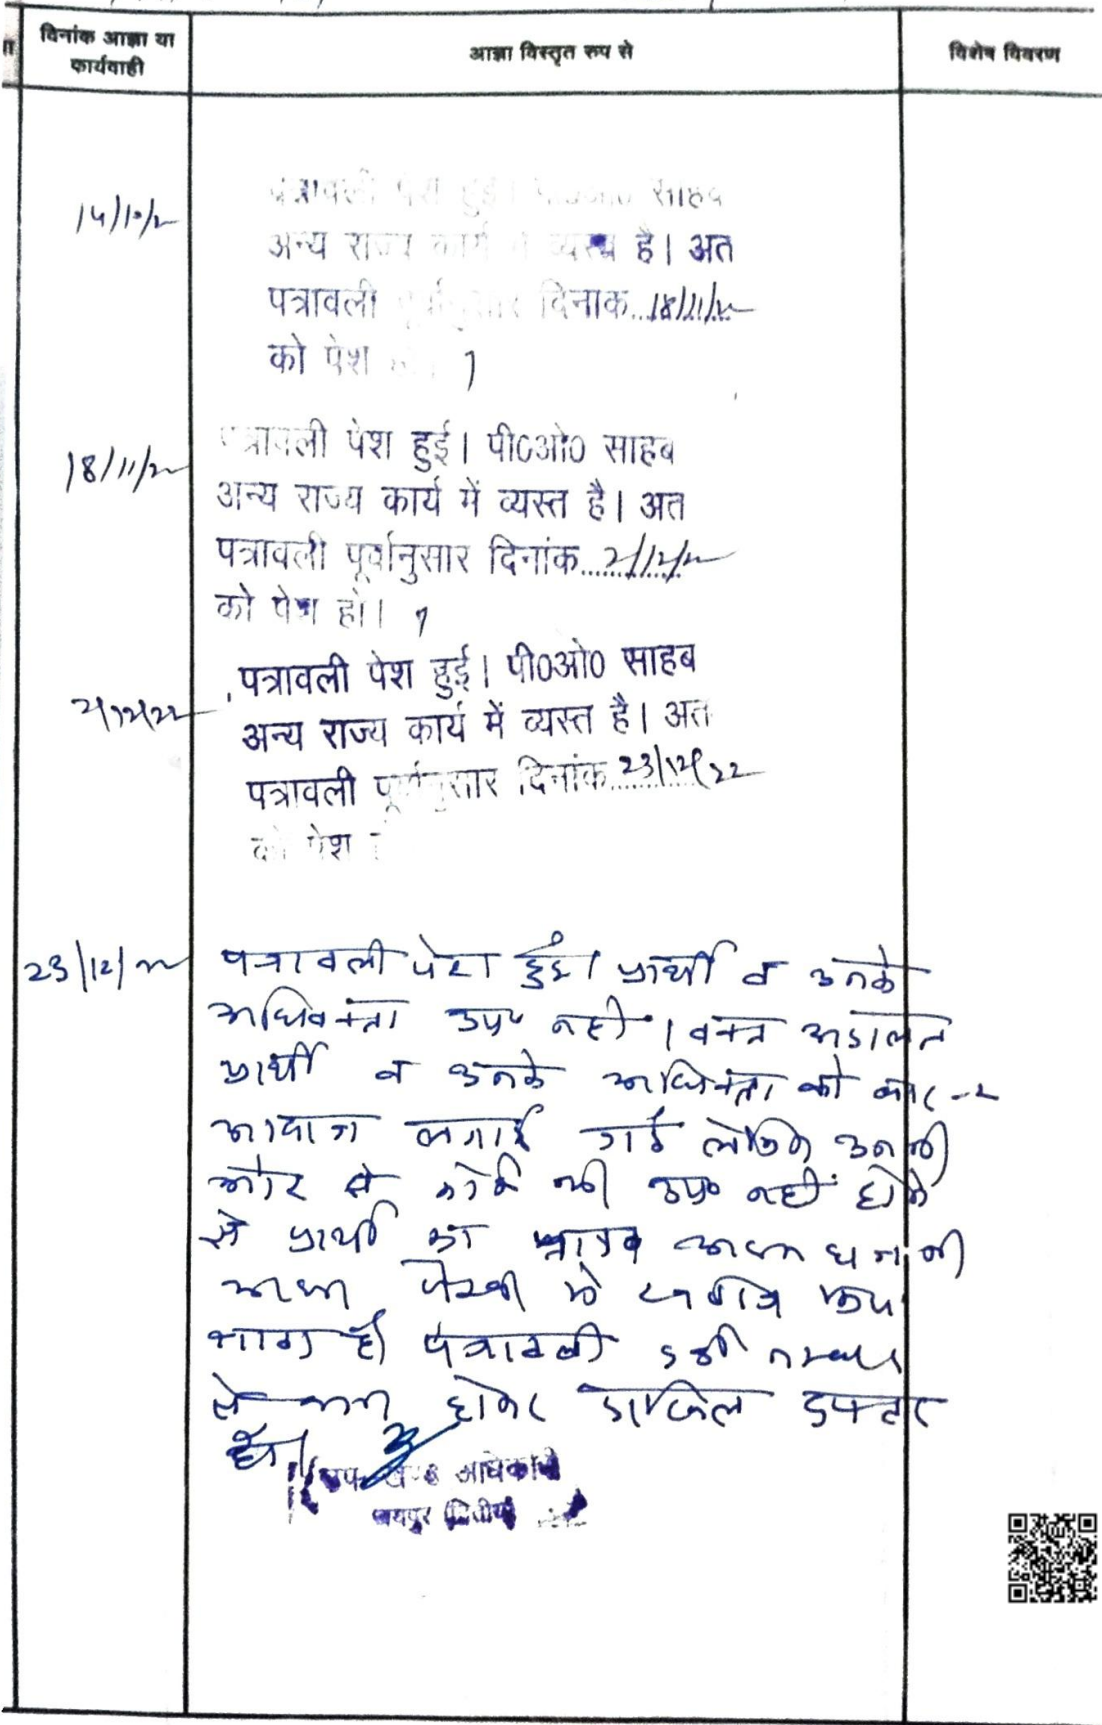 दिनांक आज्ञा या
कार्यवाही
आज्ञा विस्तृत रूप से
विशेष विवरण
पत्रावली पेश हुई। पी0ओ0 साहब
14/10/22
अन्य राज्य कार्य में व्यस्त है। अत
पत्रावली पूर्वानुसार दिनाक...18/11/22
को पेश
पत्रावली पेश हुई। पी0ओ0 साहब
18/11/22
अन्य राज्य कार्य में व्यस्त है। अत
पत्रावली पूर्वानुसार दिनांक...2/12/22
को पेश हो।
पत्रावली पेश हुई। पी0ओ0 साहब
2/12/22
अन्य राज्य कार्य में व्यस्त है। अत
पत्रावली पूर्वानुसार दिनांक 23/12/22
को पेश
23/12/22 पत्रावली पेश हुई। प्रार्थी व उनके
अधिवक्ता उप० नही। वक्त अदालत
प्रार्थी व उनके अधिवक्ता को बार-2
आवाज लगाई गई लेकिन उनकी
ओर से कोई भी उप० नहीं होने
से प्रार्थी का
पैरवी में खारिज किया
जाता है। पत्रावली इसी
से कम होकर दाखिल दफ्तर
हो।
उप खण्ड अधिकारी
जयपुर द्वितीय